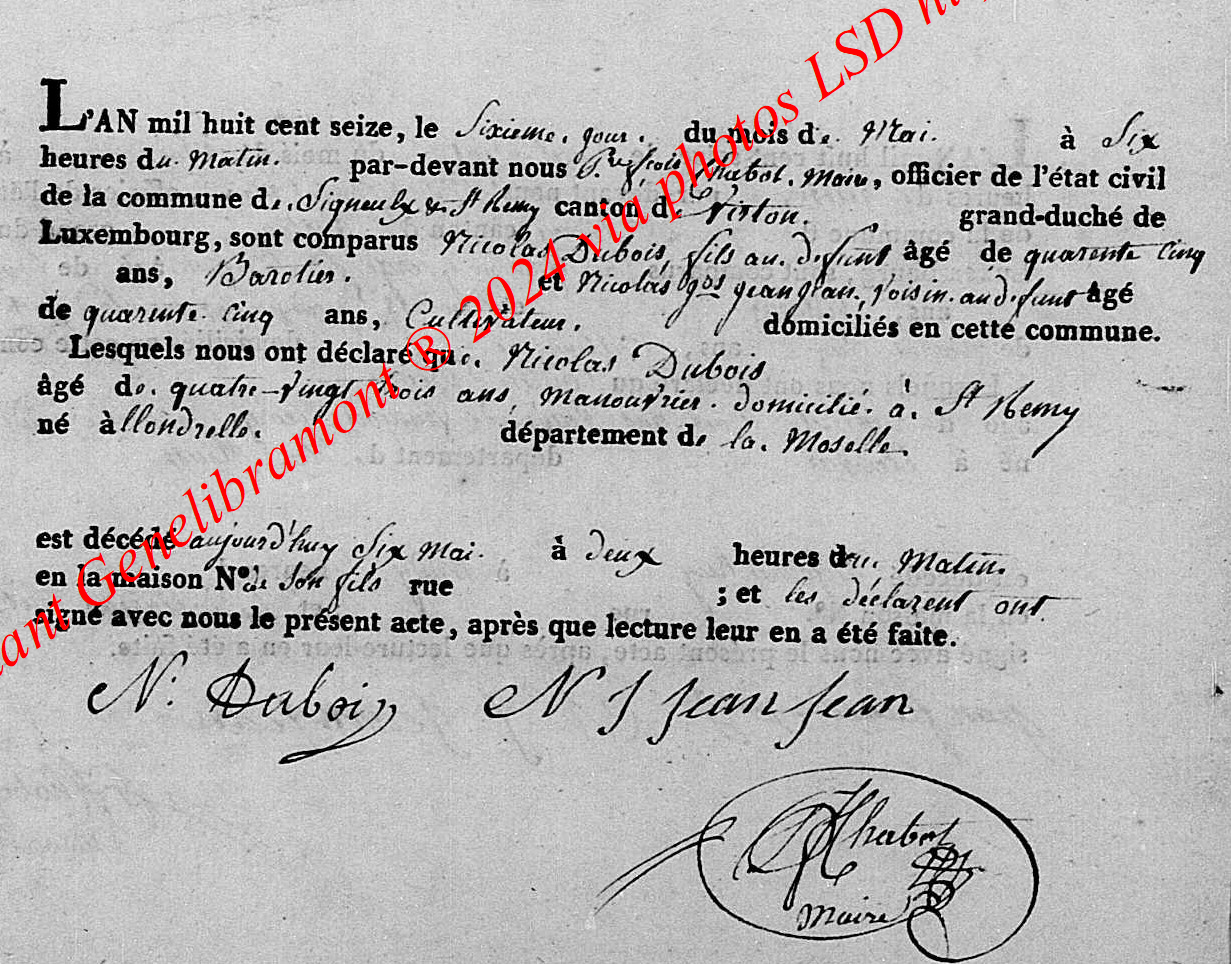 L'AN mil huit cent seize, le Sixieme. jour. du mois de Mai. à Six
heures du Matin. par-devant nous Chabot. Maire, officier de l'état civil
de la commune de. Signeulx & St Remy canton de Virton. grand-duché de
Luxembourg, sont comparus Nicolas Dubois, fils au. defunt âgé de quarente Cinq
ans, et Nicolas jeanjean, Voisin. au defunt âgé
de quarente Cinq ans, Cultivateur. domiciliés en cette commune.
Lesquels nous ont déclaré que. Nicolas Dubois
âgé de. quatre-Vingt trois ans, manouvrier. domicilié. à. St Remy
né à llondrelle. département de la. Moselle.
est décédé aujourd'huy Six Mai. à deux heures du. Matin.
en la maison No. de Son fils rue ; et les déclarent ont
signé avec nous le présent acte, après que lecture leur en a été faite.
N. Dubois N J jean jean
Chabot
Maire
Genelibramont ® 2024 via photos LSD